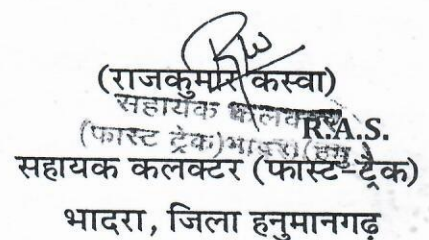 (राजकुमार कस्वा)
सहायक कलक्टर
R.A.S.
(फास्ट ट्रेक)भादरा(हनु
सहायक कलक्टर (फास्ट-ट्रैक)
भादरा, जिला हनुमानगढ़